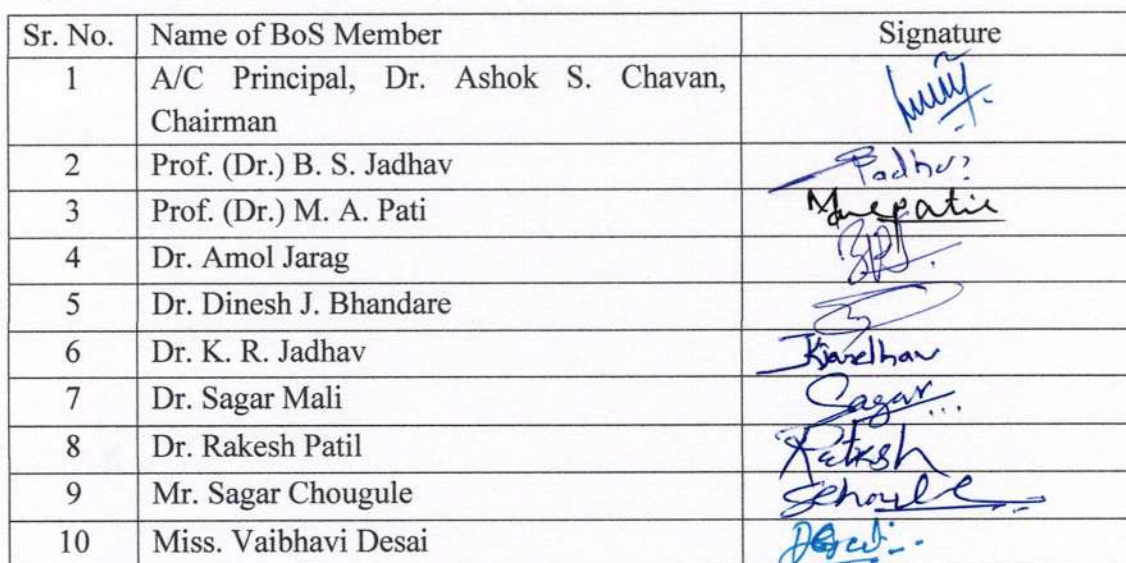 Sr. No. Name of BoS Member Signature
1 A/C Principal, Dr. Ashok S. Chavan,
Chairman
2 Prof. (Dr.) B. S. Jadhav
3 Prof. (Dr.) M. A. Pati
4 Dr. Amol Jarag
5 Dr. Dinesh J. Bhandare
6 Dr. K. R. Jadhav
7 Dr. Sagar Mali Sagar
8 Dr. Rakesh Patil
9 Mr. Sagar Chougule
10 Miss. Vaibhavi Desai